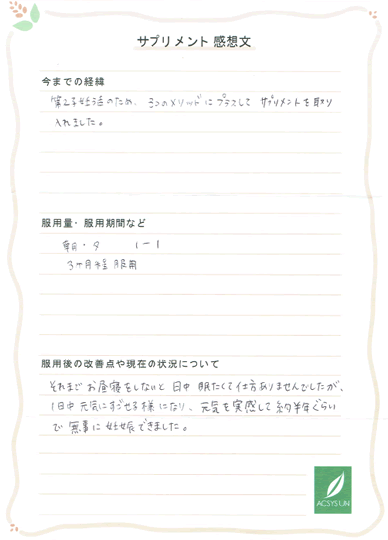 サプリメント 感想文
今までの経緯
第2子妊活のため、3つのメソッドにプラスして サプリメントを取り
入れました。
服用量・服用期間など
朝・夕 1-1
3ヶ月程 服用
服用後の改善点や現在の状況について
それまで お昼寝をしないと 日中 眠たくて仕方ありませんでしたが、
1日中 元気にすごせる様になり、元気を実感して 約半年ぐらい
で 無事に 妊娠できました。
ACSYS UN